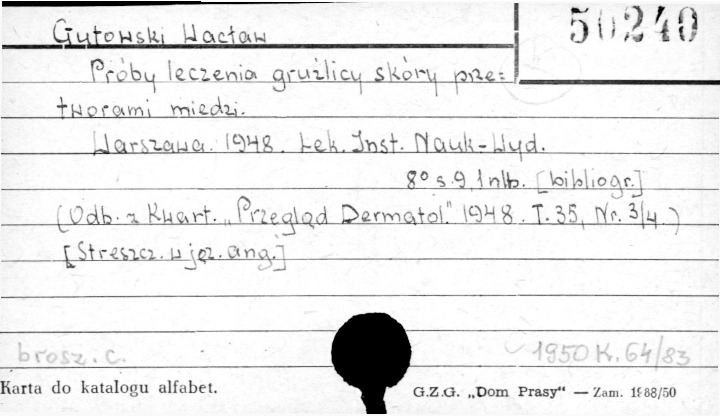 50240
Gutowski Wacław
Próby leczenia gruźlicy skóry prze=
tworami miedzi.
Warszawa. 1948. Lek. Inst. Nauk-Wyd.
8° s. 9, 1 nlb. [bibliogr.]
(Odb. z Kwart. „Przegląd Dermatol." 1948. T. 35, Nr. 3/4.)
[Streszcz. w jęz. ang.]
brosz. c.
1950 K. 64/83
Karta do katalogu alfabet.
G.Z.G. „Dom Prasy“ — Zam. 1888/50